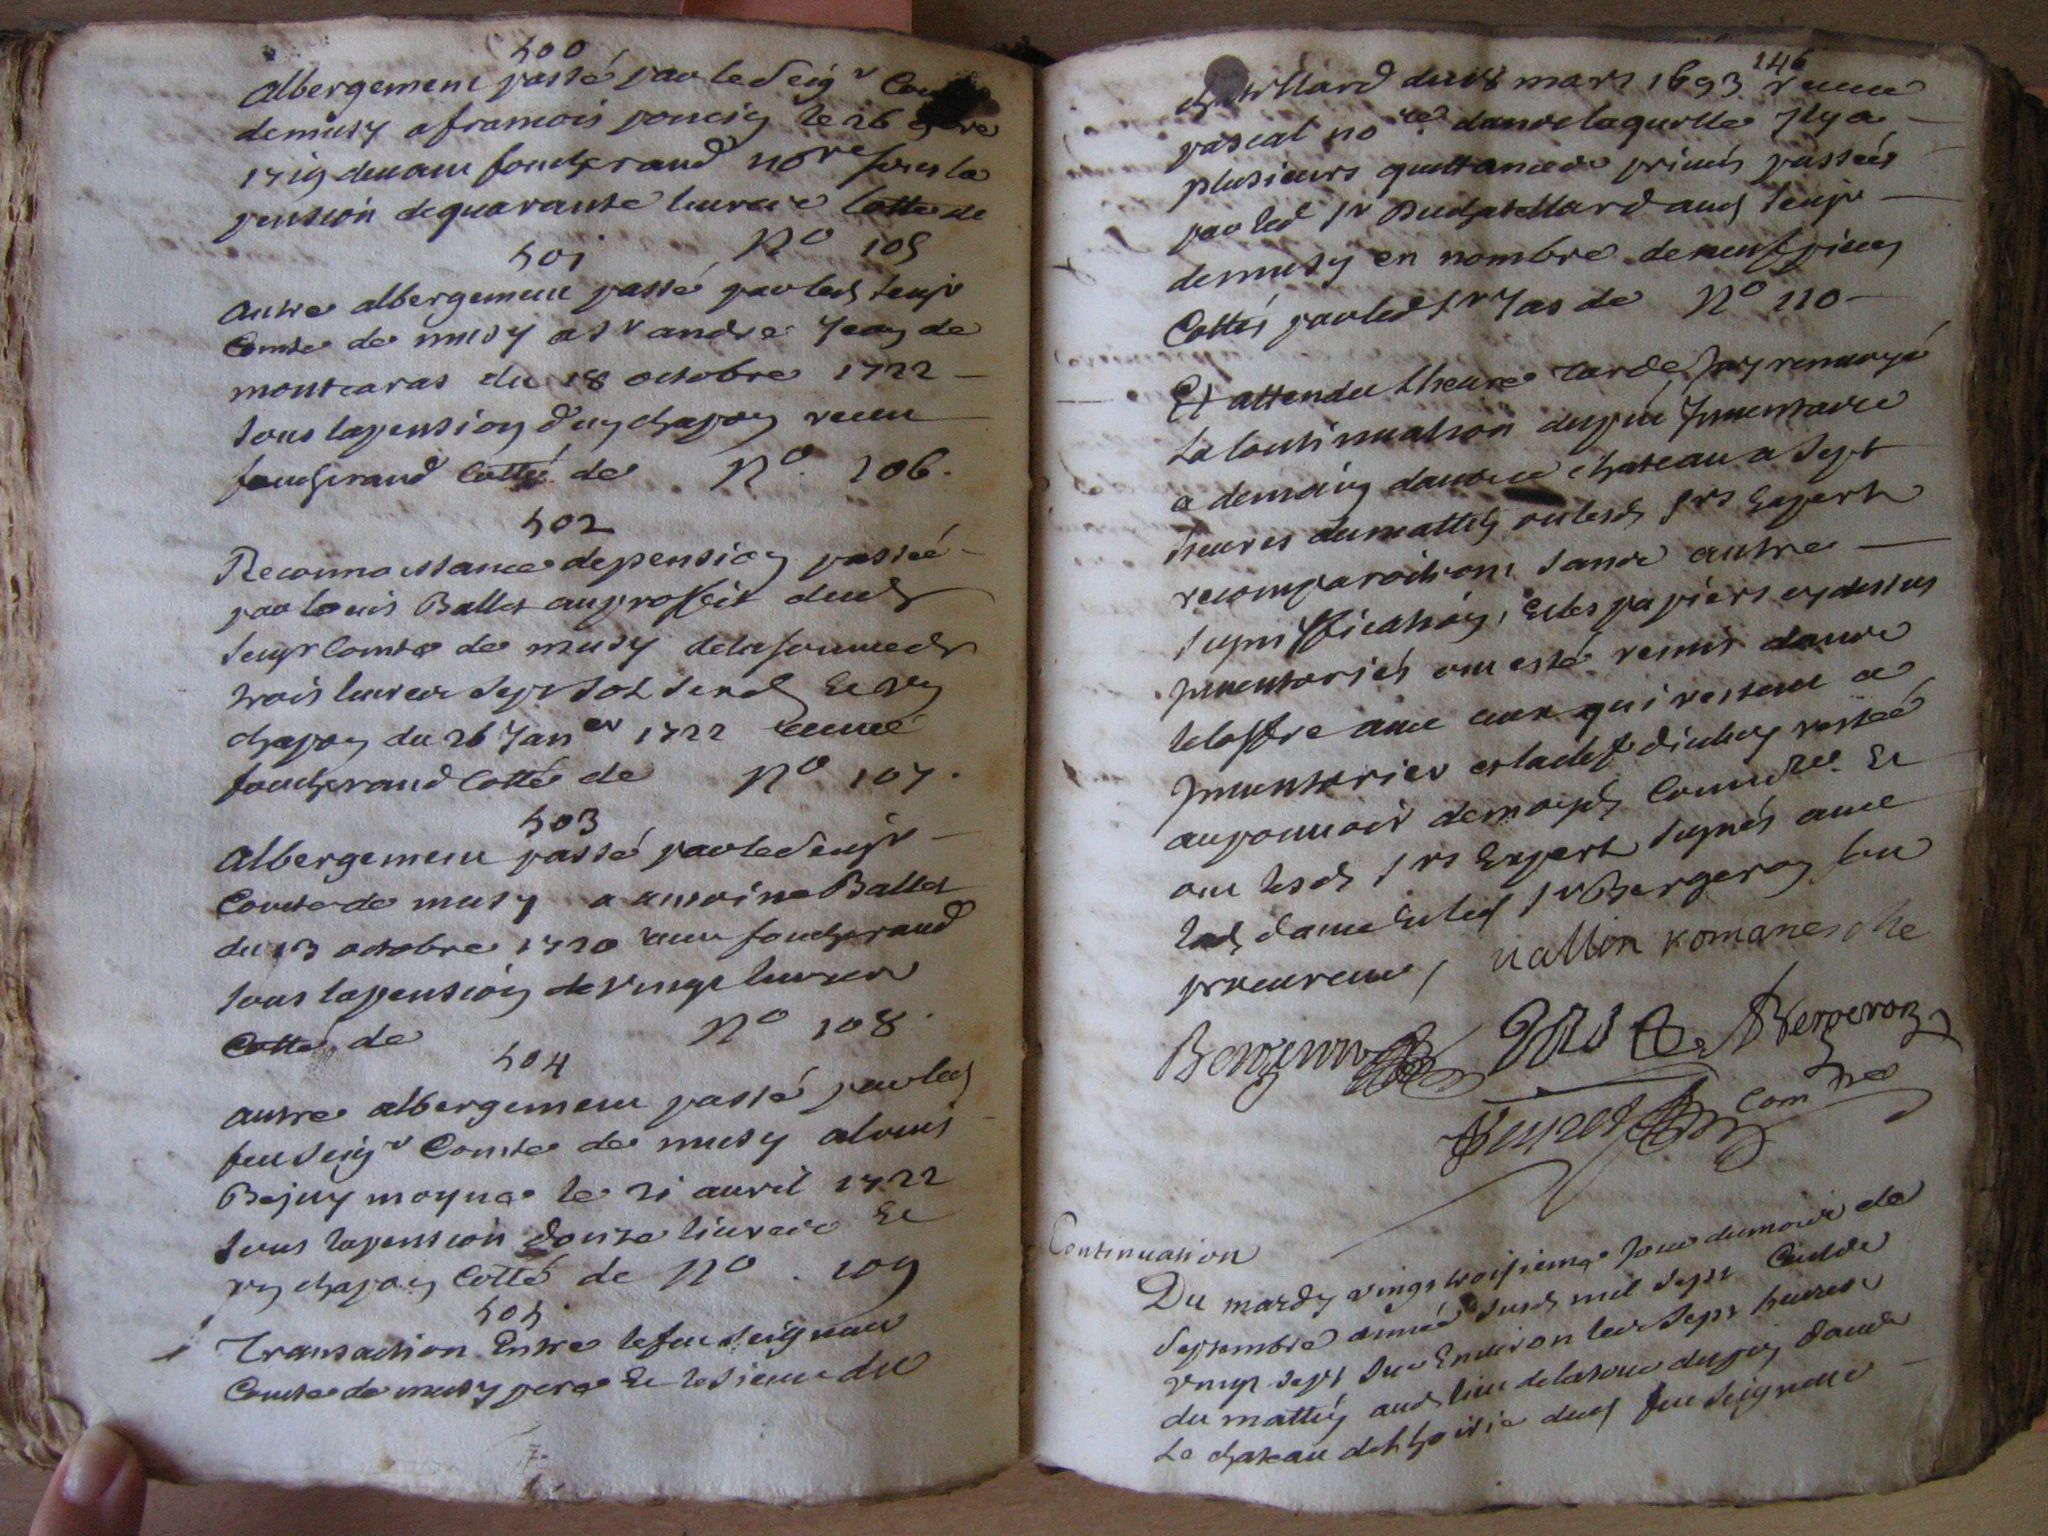 500
Albergement passé par led Seigr
de musy a francois poncin le 26 9bre
1719 devant foucherand nore sous la
pension de quarante livres cotté de
No 105
501
autre albergement passé par led seigr
Comte de musy a sr andre Jean de
montcaras du 18 octobre 1722
sous la pension d'un chapon receu
foucherand Cotté de No. 106.
502
Reconnoissance de pension passée
par louis Ballet au proffit dud
seigr Comte de musy de la somme de
trois livres sept sols six d et un
chapon du 26 Janer 1722 receue
foucherand Cotté de No 107.
503
Albergement passé par led seigr
Comte de musy a antoine Ballet
du 13 octobre 1720 receu foucherand
sous la pension de vingt livres
Cotté de No 108.
504
autre albergement passé par led
feu seigr Comte de musy a louis
Bejuy moyne le 21 avril 1722
sous la pension d'onze livres et
un chapon Cotté de No. 109
505
Transaction Entre le feu seigneur
Comte de musy pere et le sieur du
146
chatellard du 18 mars 1693 receue
pascal nore dans laquelle Il y a
plusieurs quittances privés passées
par led sr Duchatellard aud seigr
de musy en nombre de neuf pieces
Cottés par led sr Jas de No 110
Et attendu l'heure tarde J'ay renvoyé
La Continuation du pnt Inventaire
a demain dans ce chateau a sept
heures du mattin ou lesd srs Experts
recomparoitront sans autre
signiffication, et les papiers cy dessus
Inventoriés ont esté remis dans
le coffre avec ceux qui restent a
Inventorier et la clef d'icelluy restée
au pouvoir de moyd Commre. Et
ont lesd srs Experts signés avec
lad dame et led sr Bergeron son
procureur, vallin romanesche
Jas Bergeron
Comre
Continuation
Du mardy vingt troisieme jour du mois de
Septembre année susd mil sept Cents
vingt sept sur Environ les sept heures
du mattin aud lieu de la tour du pin dans
Le chateau de l'hoirie dud feu seigneur